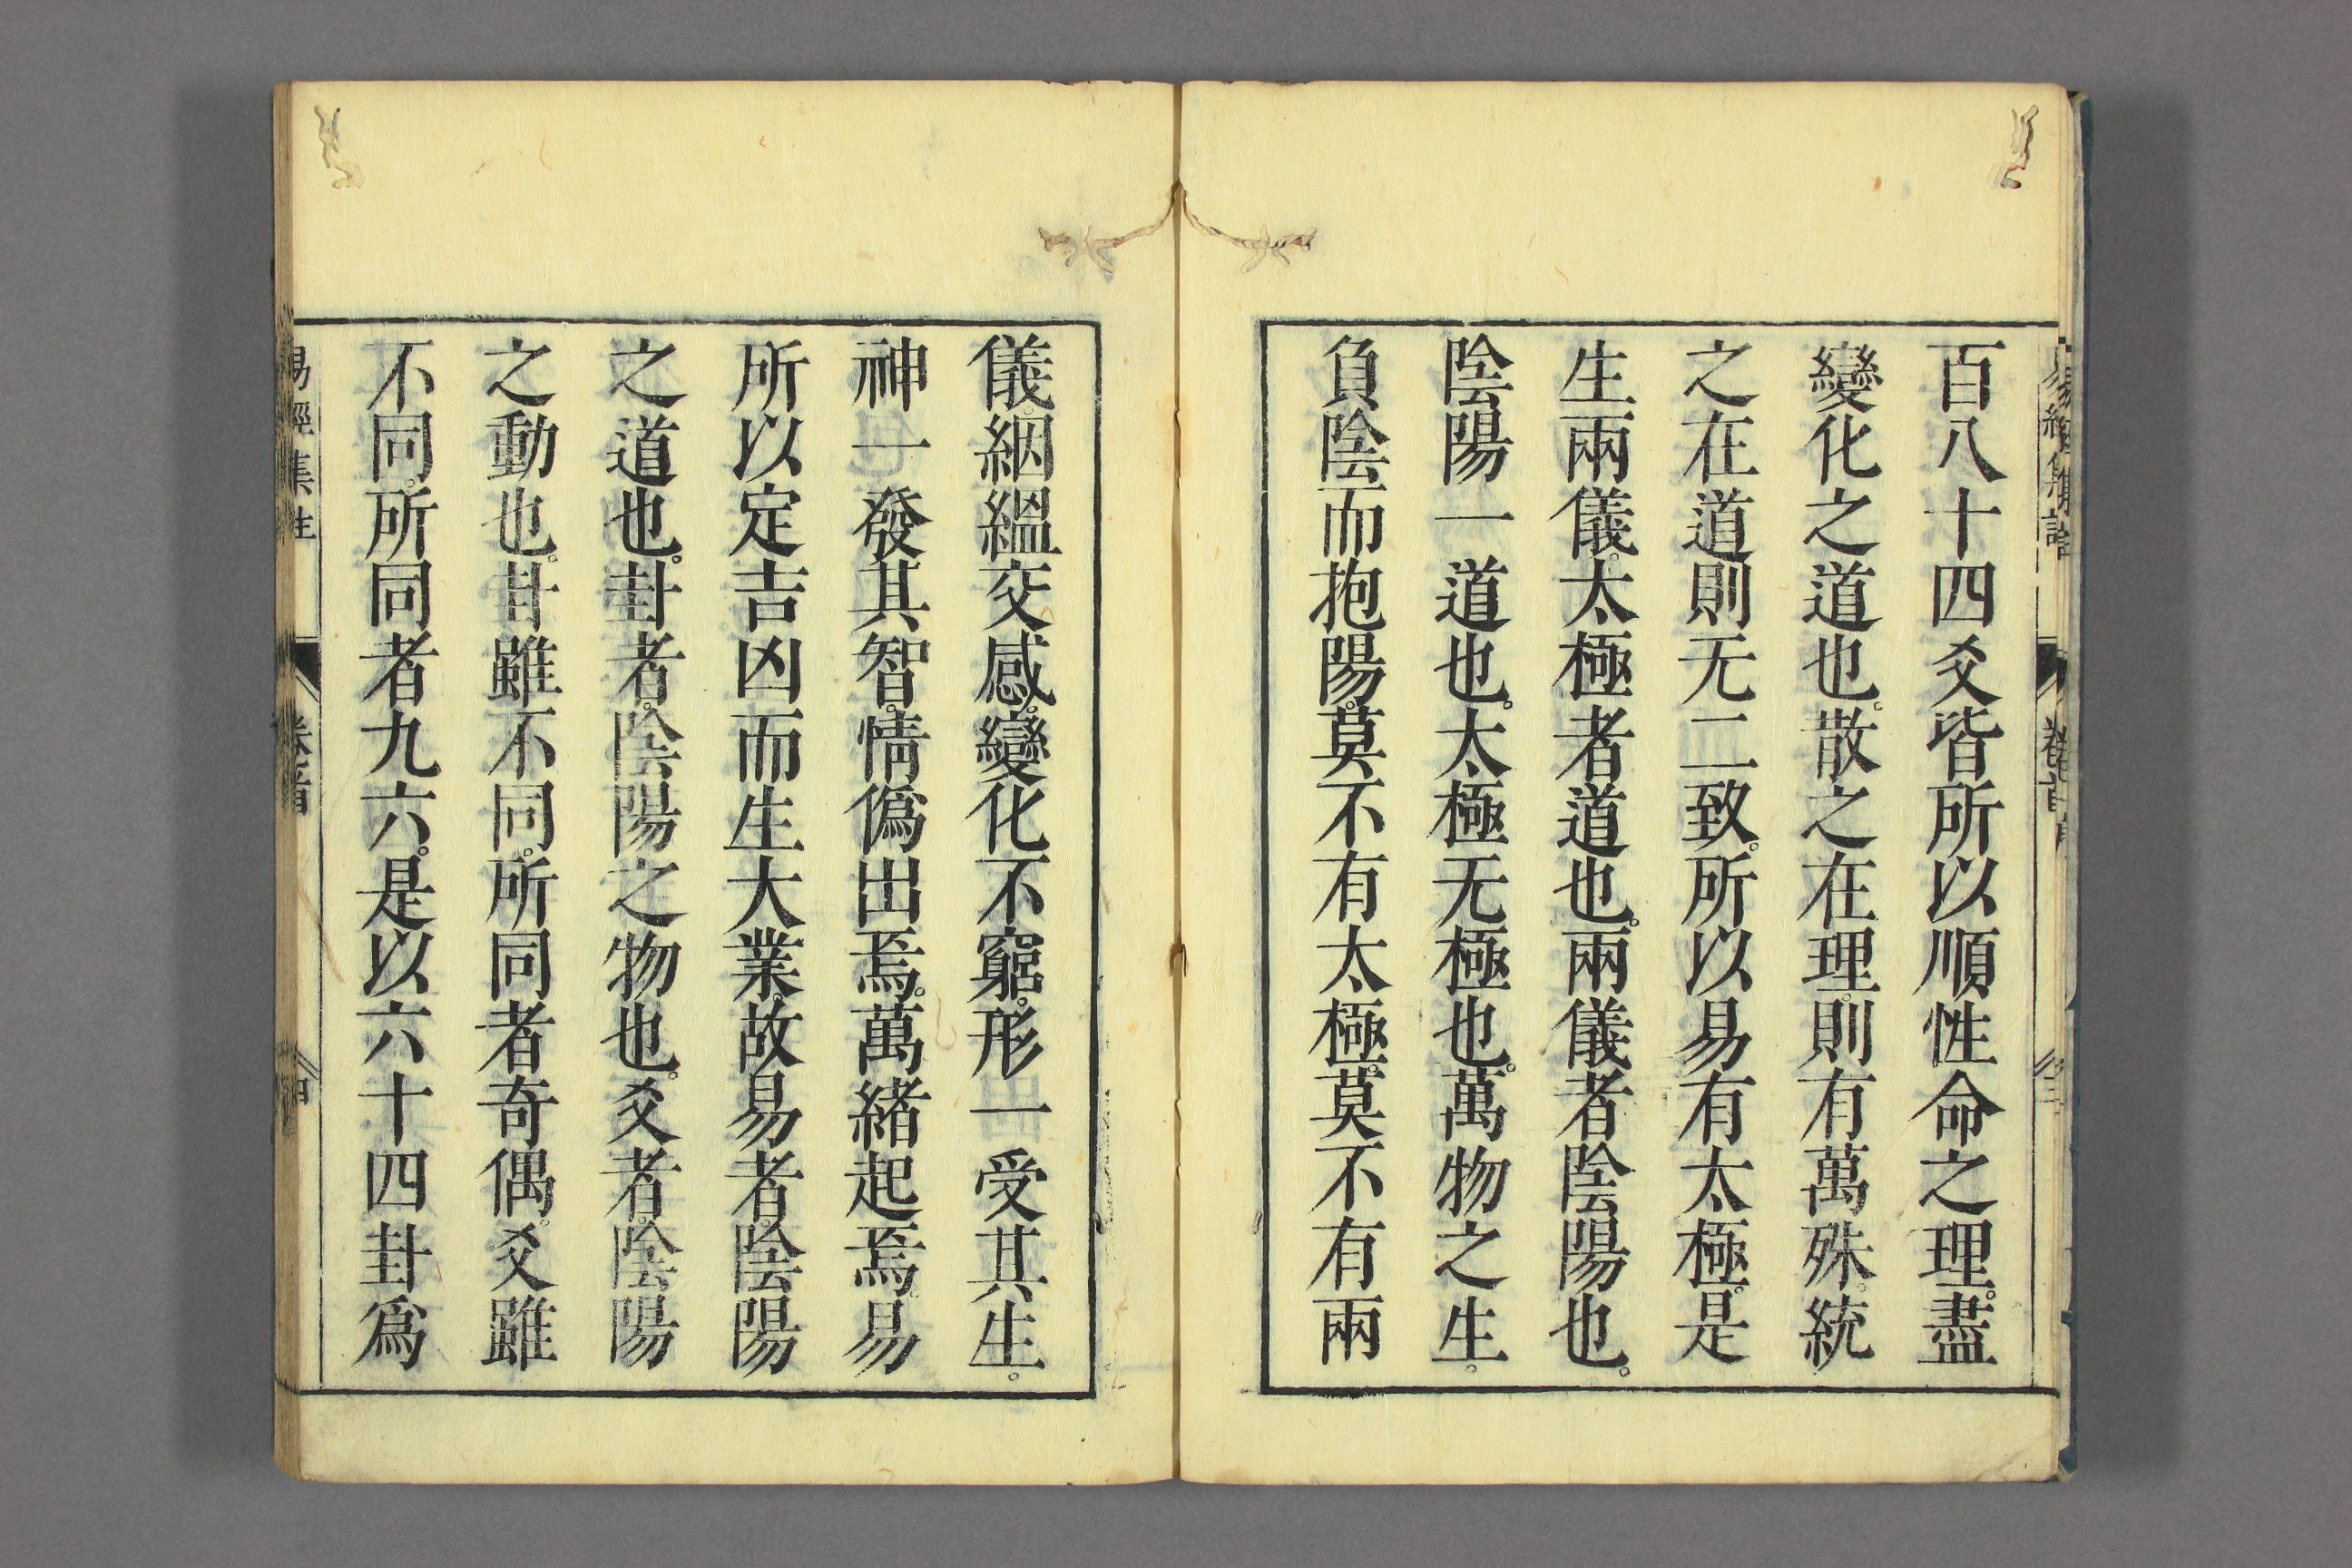 易經集註 卷首
百八十四爻皆所以順性命之理。盡
變化之道也。散之在理。則有萬殊。統
之在道則无二致。所以易有太極。是
生兩儀。太極者道也。兩儀者陰陽也。
陰陽一道也。太極无極也。萬物之生。
負陰而抱陽。莫不有太極。莫不有兩
儀。絪縕交感。變化不窮。形一受其生。
神一發其智。情僞出焉。萬緒起焉。易
所以定吉凶而生大業。故易者。陰陽
之道也。卦者。陰陽之物也。爻者。陰陽
之動也。卦雖不同。所同者奇偶。爻雖
不同。所同者九六。是以六十四卦爲
易經集註 卷首 四